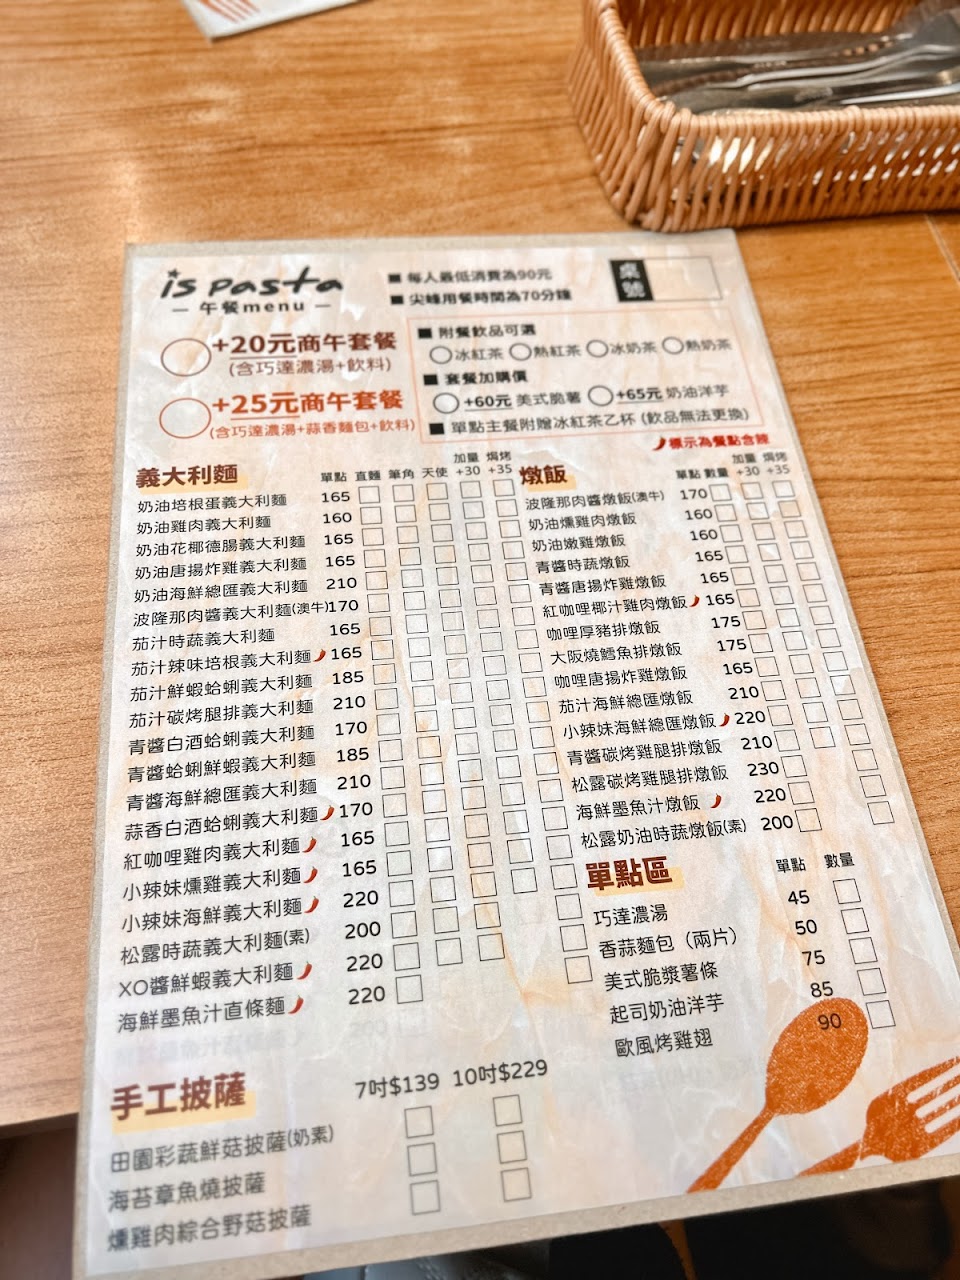 is pasta
— 午餐menu —
■ 每人最低消費為90元
■ 尖峰用餐時間為70分鐘
桌號
+20元商午套餐
(含巧達濃湯+飲料)
+25元商午套餐
(含巧達濃湯+蒜香麵包+飲料)
■ 附餐飲品可選
冰紅茶 熱紅茶 冰奶茶 熱奶茶
■ 套餐加購價
+60元 美式脆薯 +65元 奶油洋芋
■ 單點主餐附贈冰紅茶乙杯 (飲品無法更換)
標示為餐點含辣
義大利麵 單點 直麵 筆角 天使 加量+30 焗烤+35
奶油培根蛋義大利麵 165
奶油雞肉義大利麵 160
奶油花椰德腸義大利麵 165
奶油唐揚炸雞義大利麵 165
奶油海鮮總匯義大利麵 210
波隆那肉醬義大利麵(澳牛)170
茄汁時蔬義大利麵 165
茄汁辣味培根義大利麵 165
茄汁鮮蝦蛤蜊義大利麵 185
茄汁碳烤腿排義大利麵 210
青醬白酒蛤蜊義大利麵 170
青醬蛤蜊鮮蝦義大利麵 185
青醬海鮮總匯義大利麵 210
蒜香白酒蛤蜊義大利麵 170
紅咖哩雞肉義大利麵 165
小辣妹燻雞義大利麵 165
小辣妹海鮮義大利麵 220
松露時蔬義大利麵(素) 200
XO醬鮮蝦義大利麵 220
海鮮墨魚汁直條麵 220
手工披薩 7吋$139 10吋$229
田園彩蔬鮮菇披薩(奶素)
海苔章魚燒披薩
燻雞肉綜合野菇披薩
燉飯 單點 數量 加量+30 焗烤+35
波隆那肉醬燉飯(澳牛) 170
奶油燻雞肉燉飯 160
奶油嫩雞燉飯 160
青醬時蔬燉飯 165
青醬唐揚炸雞燉飯 165
紅咖哩椰汁雞肉燉飯 165
咖哩厚豬排燉飯 175
大阪燒鱈魚排燉飯 175
咖哩唐揚炸雞燉飯 165
茄汁海鮮總匯燉飯 210
小辣妹海鮮總匯燉飯 220
青醬碳烤雞腿排燉飯 210
松露碳烤雞腿排燉飯 230
海鮮墨魚汁燉飯 220
松露奶油時蔬燉飯(素) 200
單點區 單點 數量
巧達濃湯 45
香蒜麵包（兩片） 50
美式脆漿薯條 75
起司奶油洋芋 85
歐風烤雞翅 90